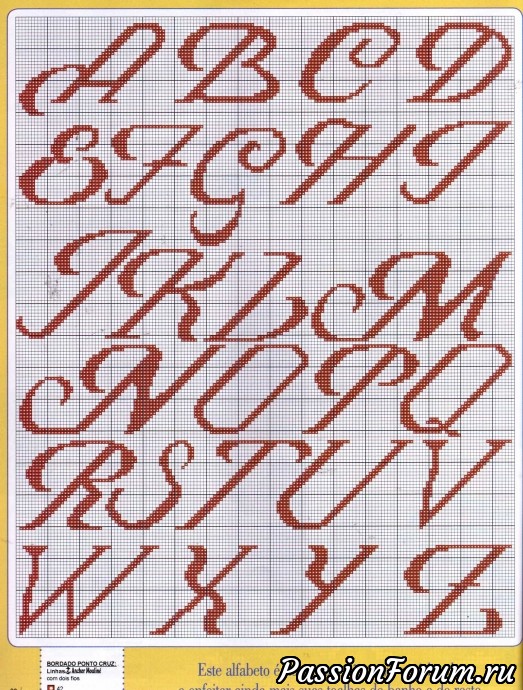 A B C D
E F G H I
J K L M
N O P Q
R S T U V
W X Y Z
BORDADO PONTO CRUZ:
Linhas Anchor Mouliné
com dois fios
47
Este alfabeto é
a enfeitar ainda mais suas toalhas de banho
PassionForum.ru